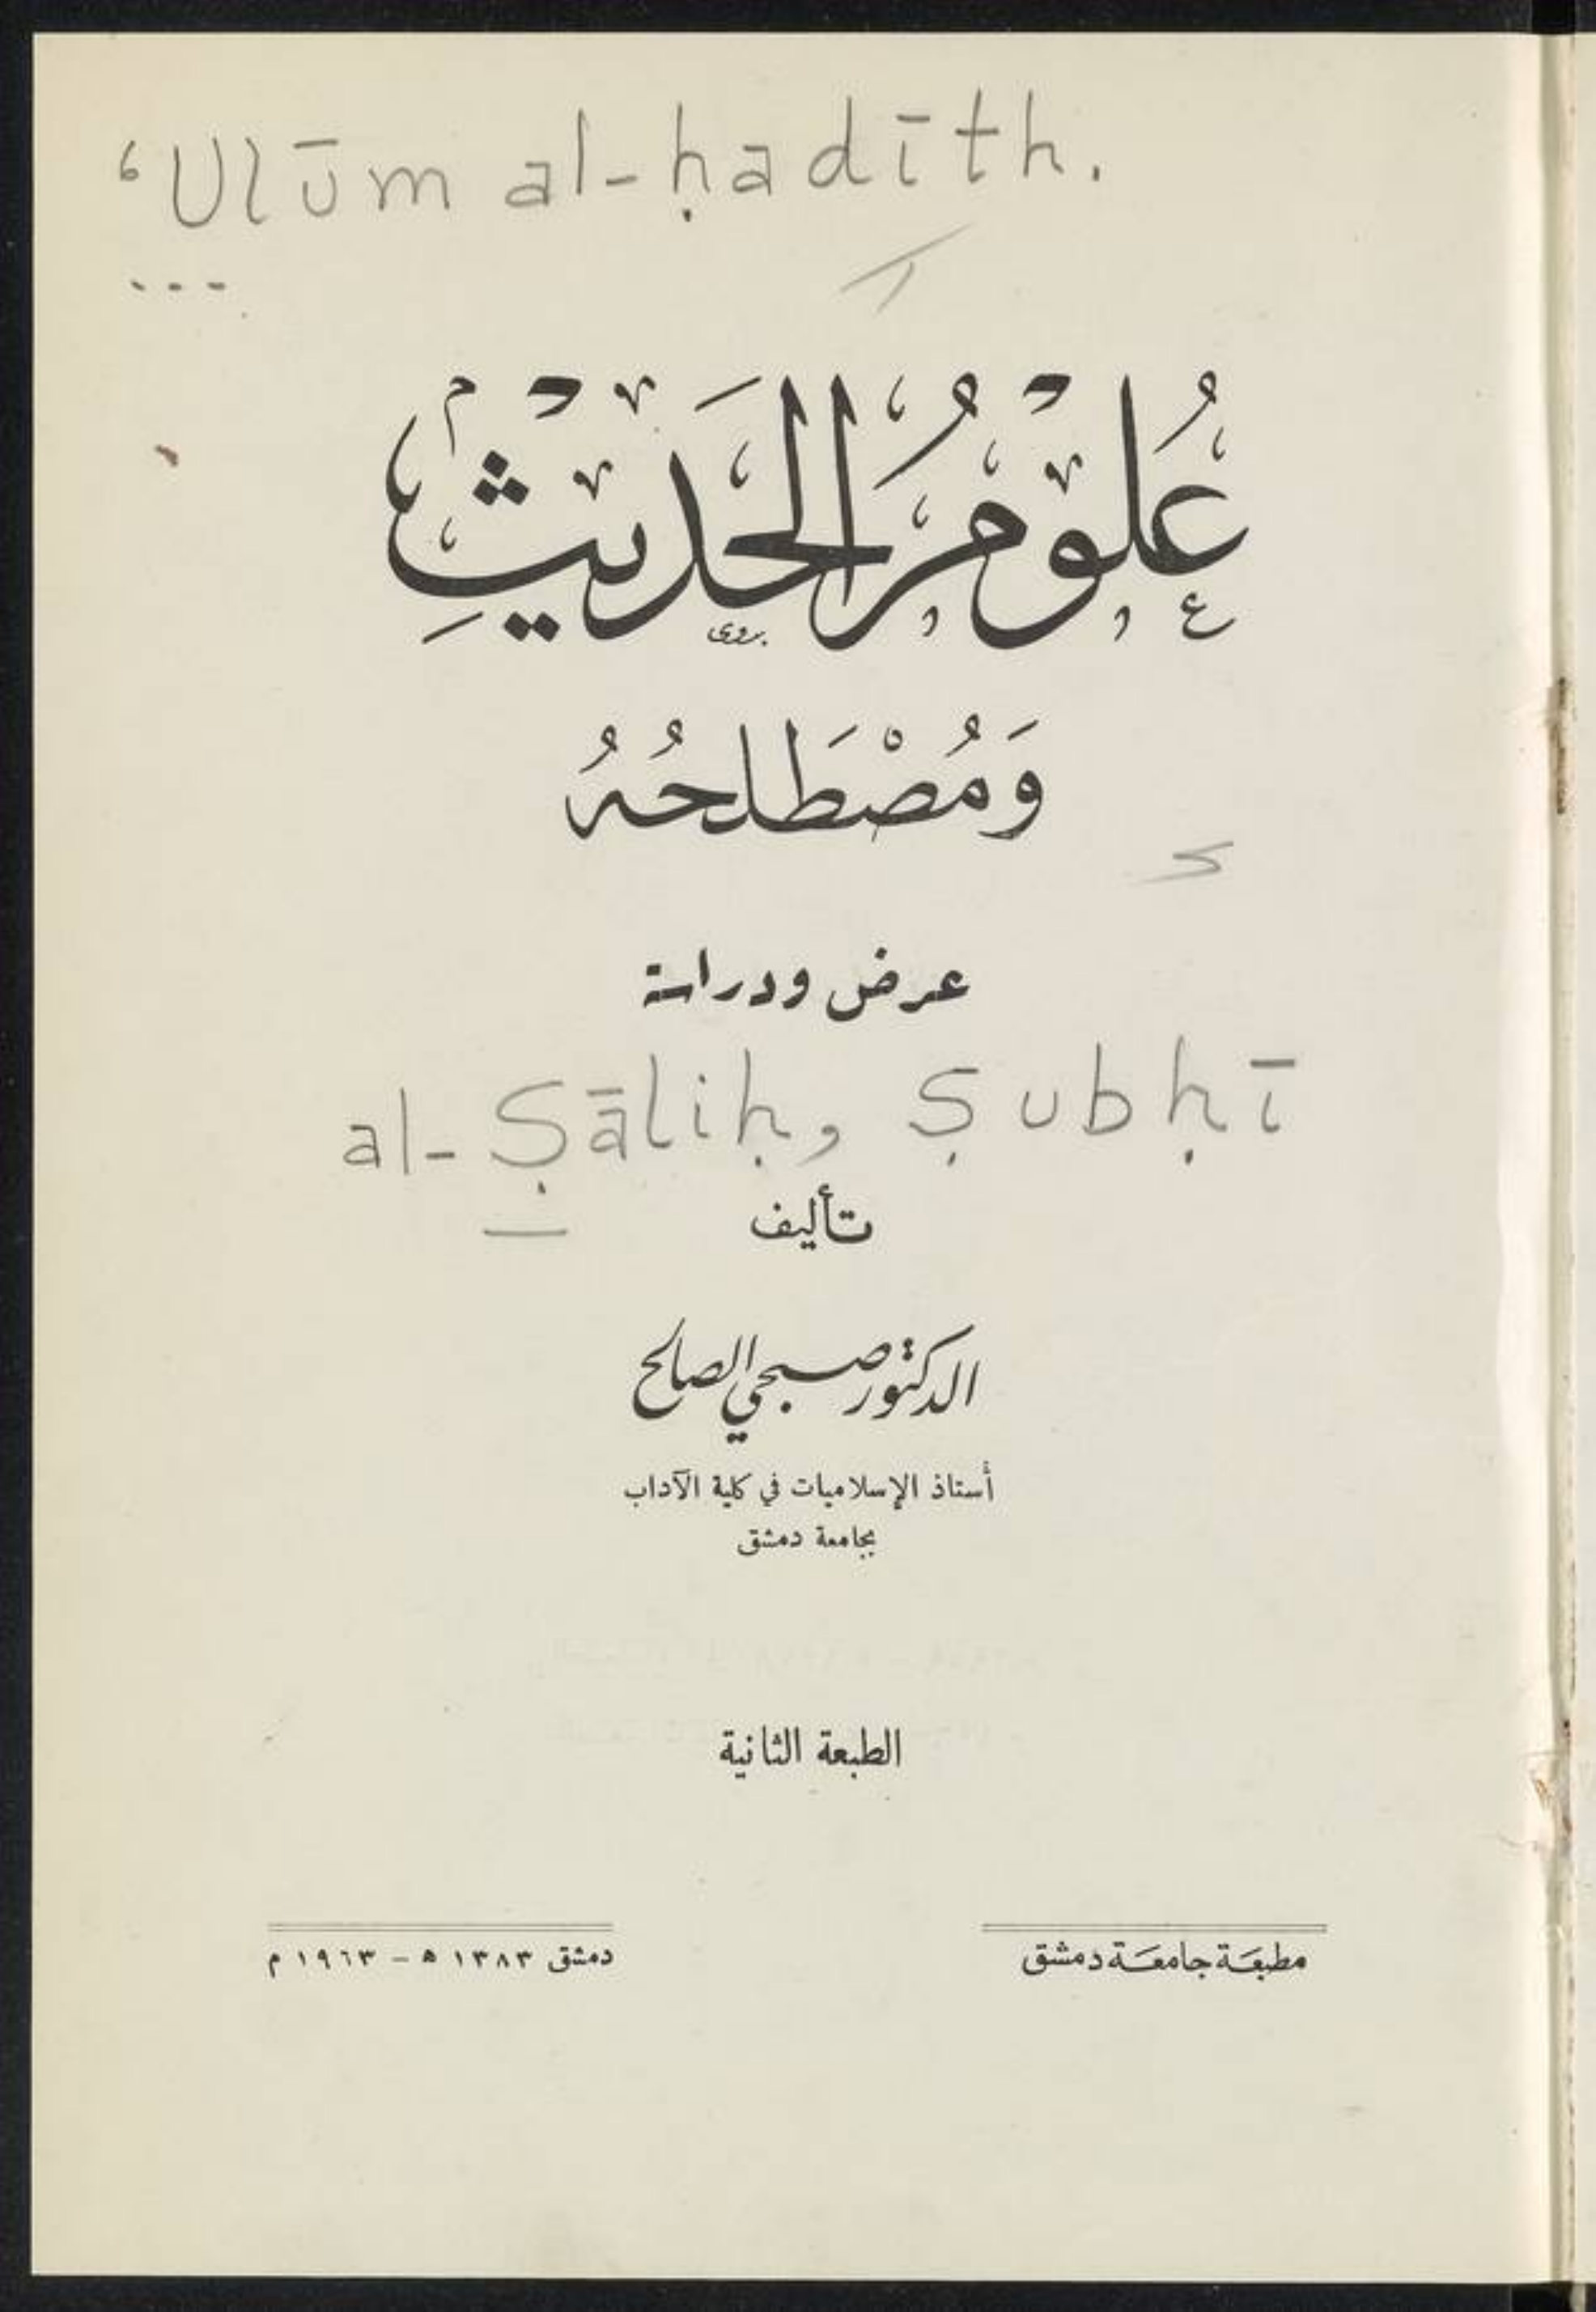 ‘Ulūm al-ḥadīth.
...
عُلُوْمُ الحَدِيْثِ
بدوي
وَمُصْطَلَحُهُ
عرض ودراسة
al-Ṣāliḥ, Ṣubḥī
تأليف
الدكتور صبحي الصالح
أستاذ الإسلاميات في كلية الآداب
بجامعة دمشق
الطبعة الثانية
مطبعَة جامعَة دمشق
دمشق ١٣٨٣ ه – ١٩٦٣ م